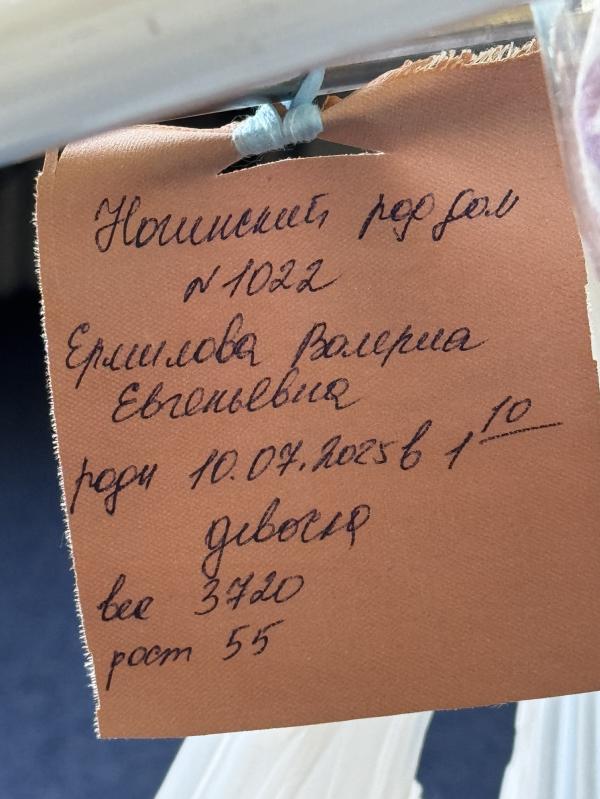 Ногинский род дом
N 1022
Ермилова Валерия
Евгеньевна
роди 10.07.2025 в 1 10
девочка
вес 3720
рост 55